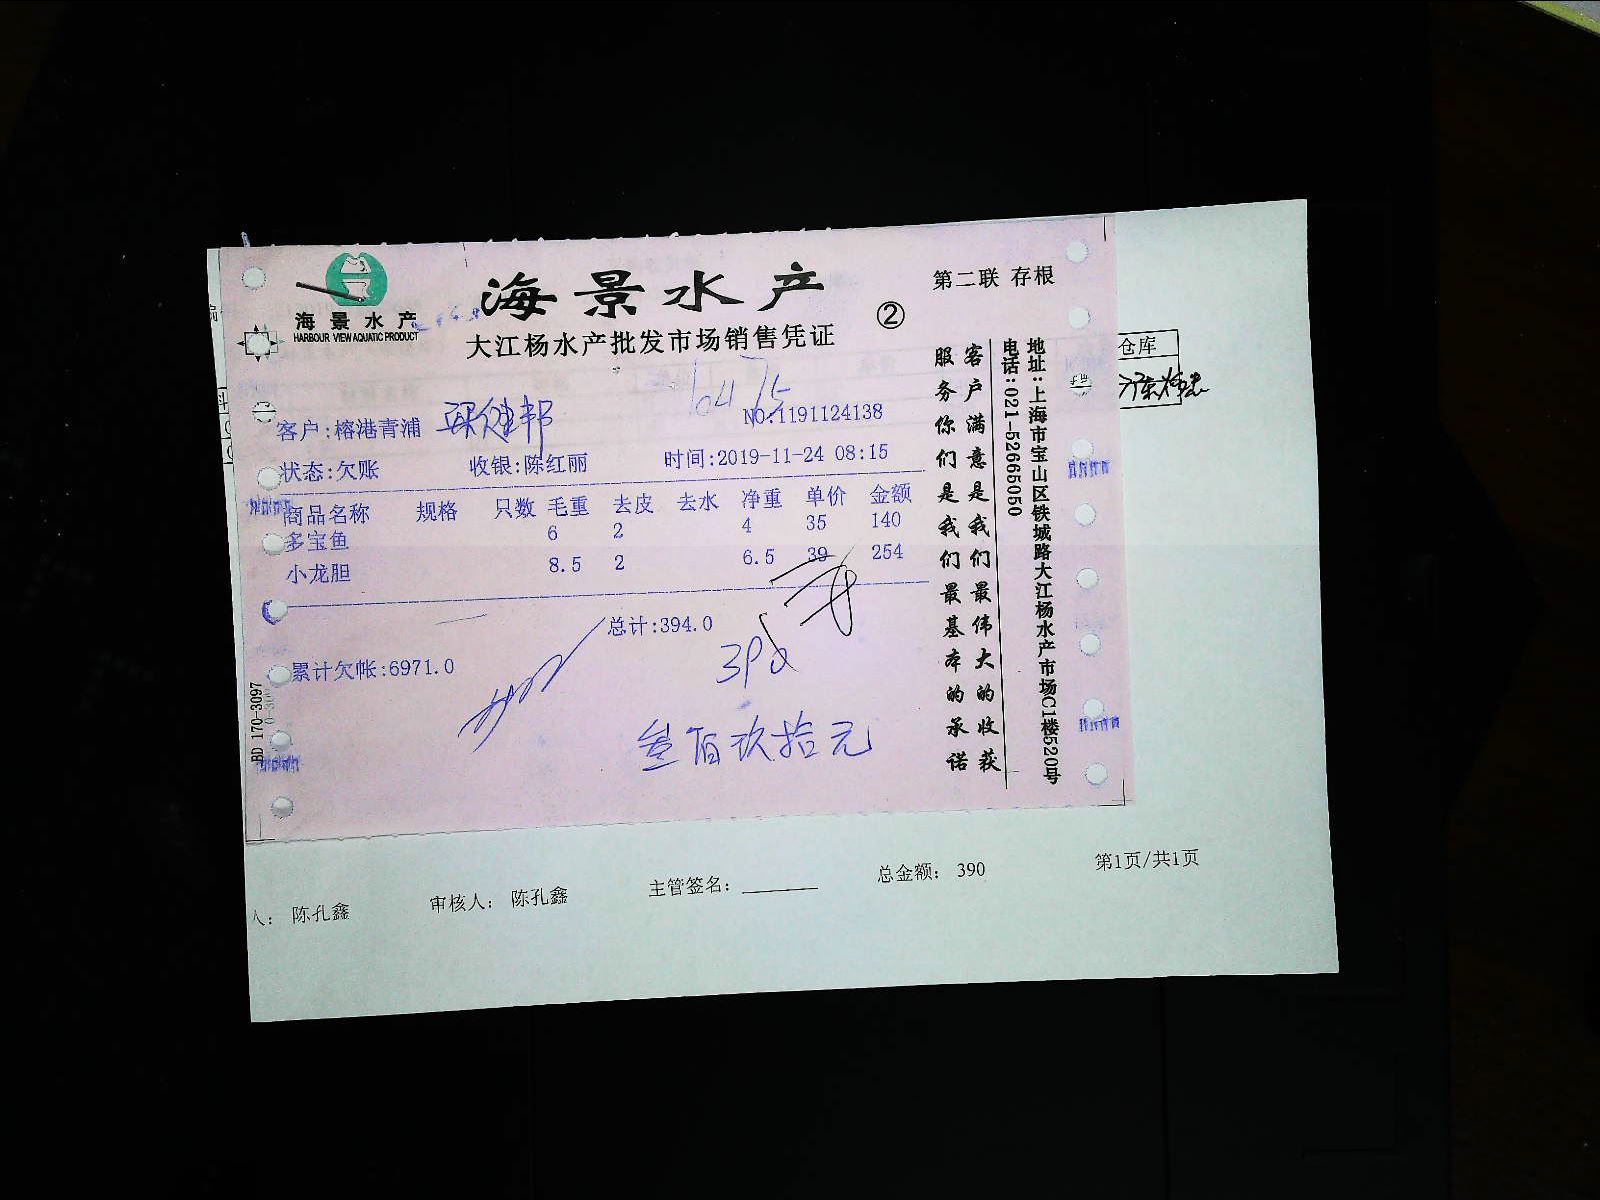 海景水产
HARBOUR VIEW AQUATIC PRODUCT
海景水产
大江杨水产批发市场销售凭证
②
第二联 存根
客户:榕港青浦
NO:1191124138
状态:欠账 收银:陈红丽 时间:2019-11-24 08:15
商品名称 规格 只数 毛重 去皮 去水 净重 单价 金额
多宝鱼 6 2 4 35 140
小龙胆 8.5 2 6.5 39 254
总计:394.0
累计欠帐:6971.0
390
叁佰玖拾元
BD 170-3097
客户满意是我们最伟大的收获
服务你们是我们最基本的承诺
地址:上海市宝山区铁城路大江杨水产市场C1楼520号
电话:021-52665050
仓库
人: 陈孔鑫 审核人: 陈孔鑫 主管签名: 总金额: 390 第1页/共1页